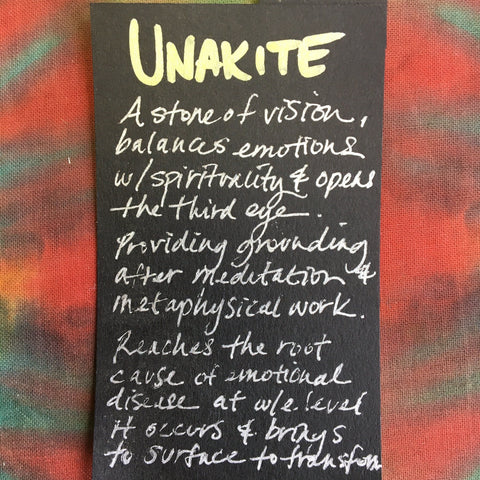 UNAKITE
A stone of vision,
balances emotions
w/spirituality & opens
the third eye.
Providing grounding
after meditation &
metaphysical work.
Reaches the root
cause of emotional
disease at w/e. level
it occurs & brings
to surface to transform